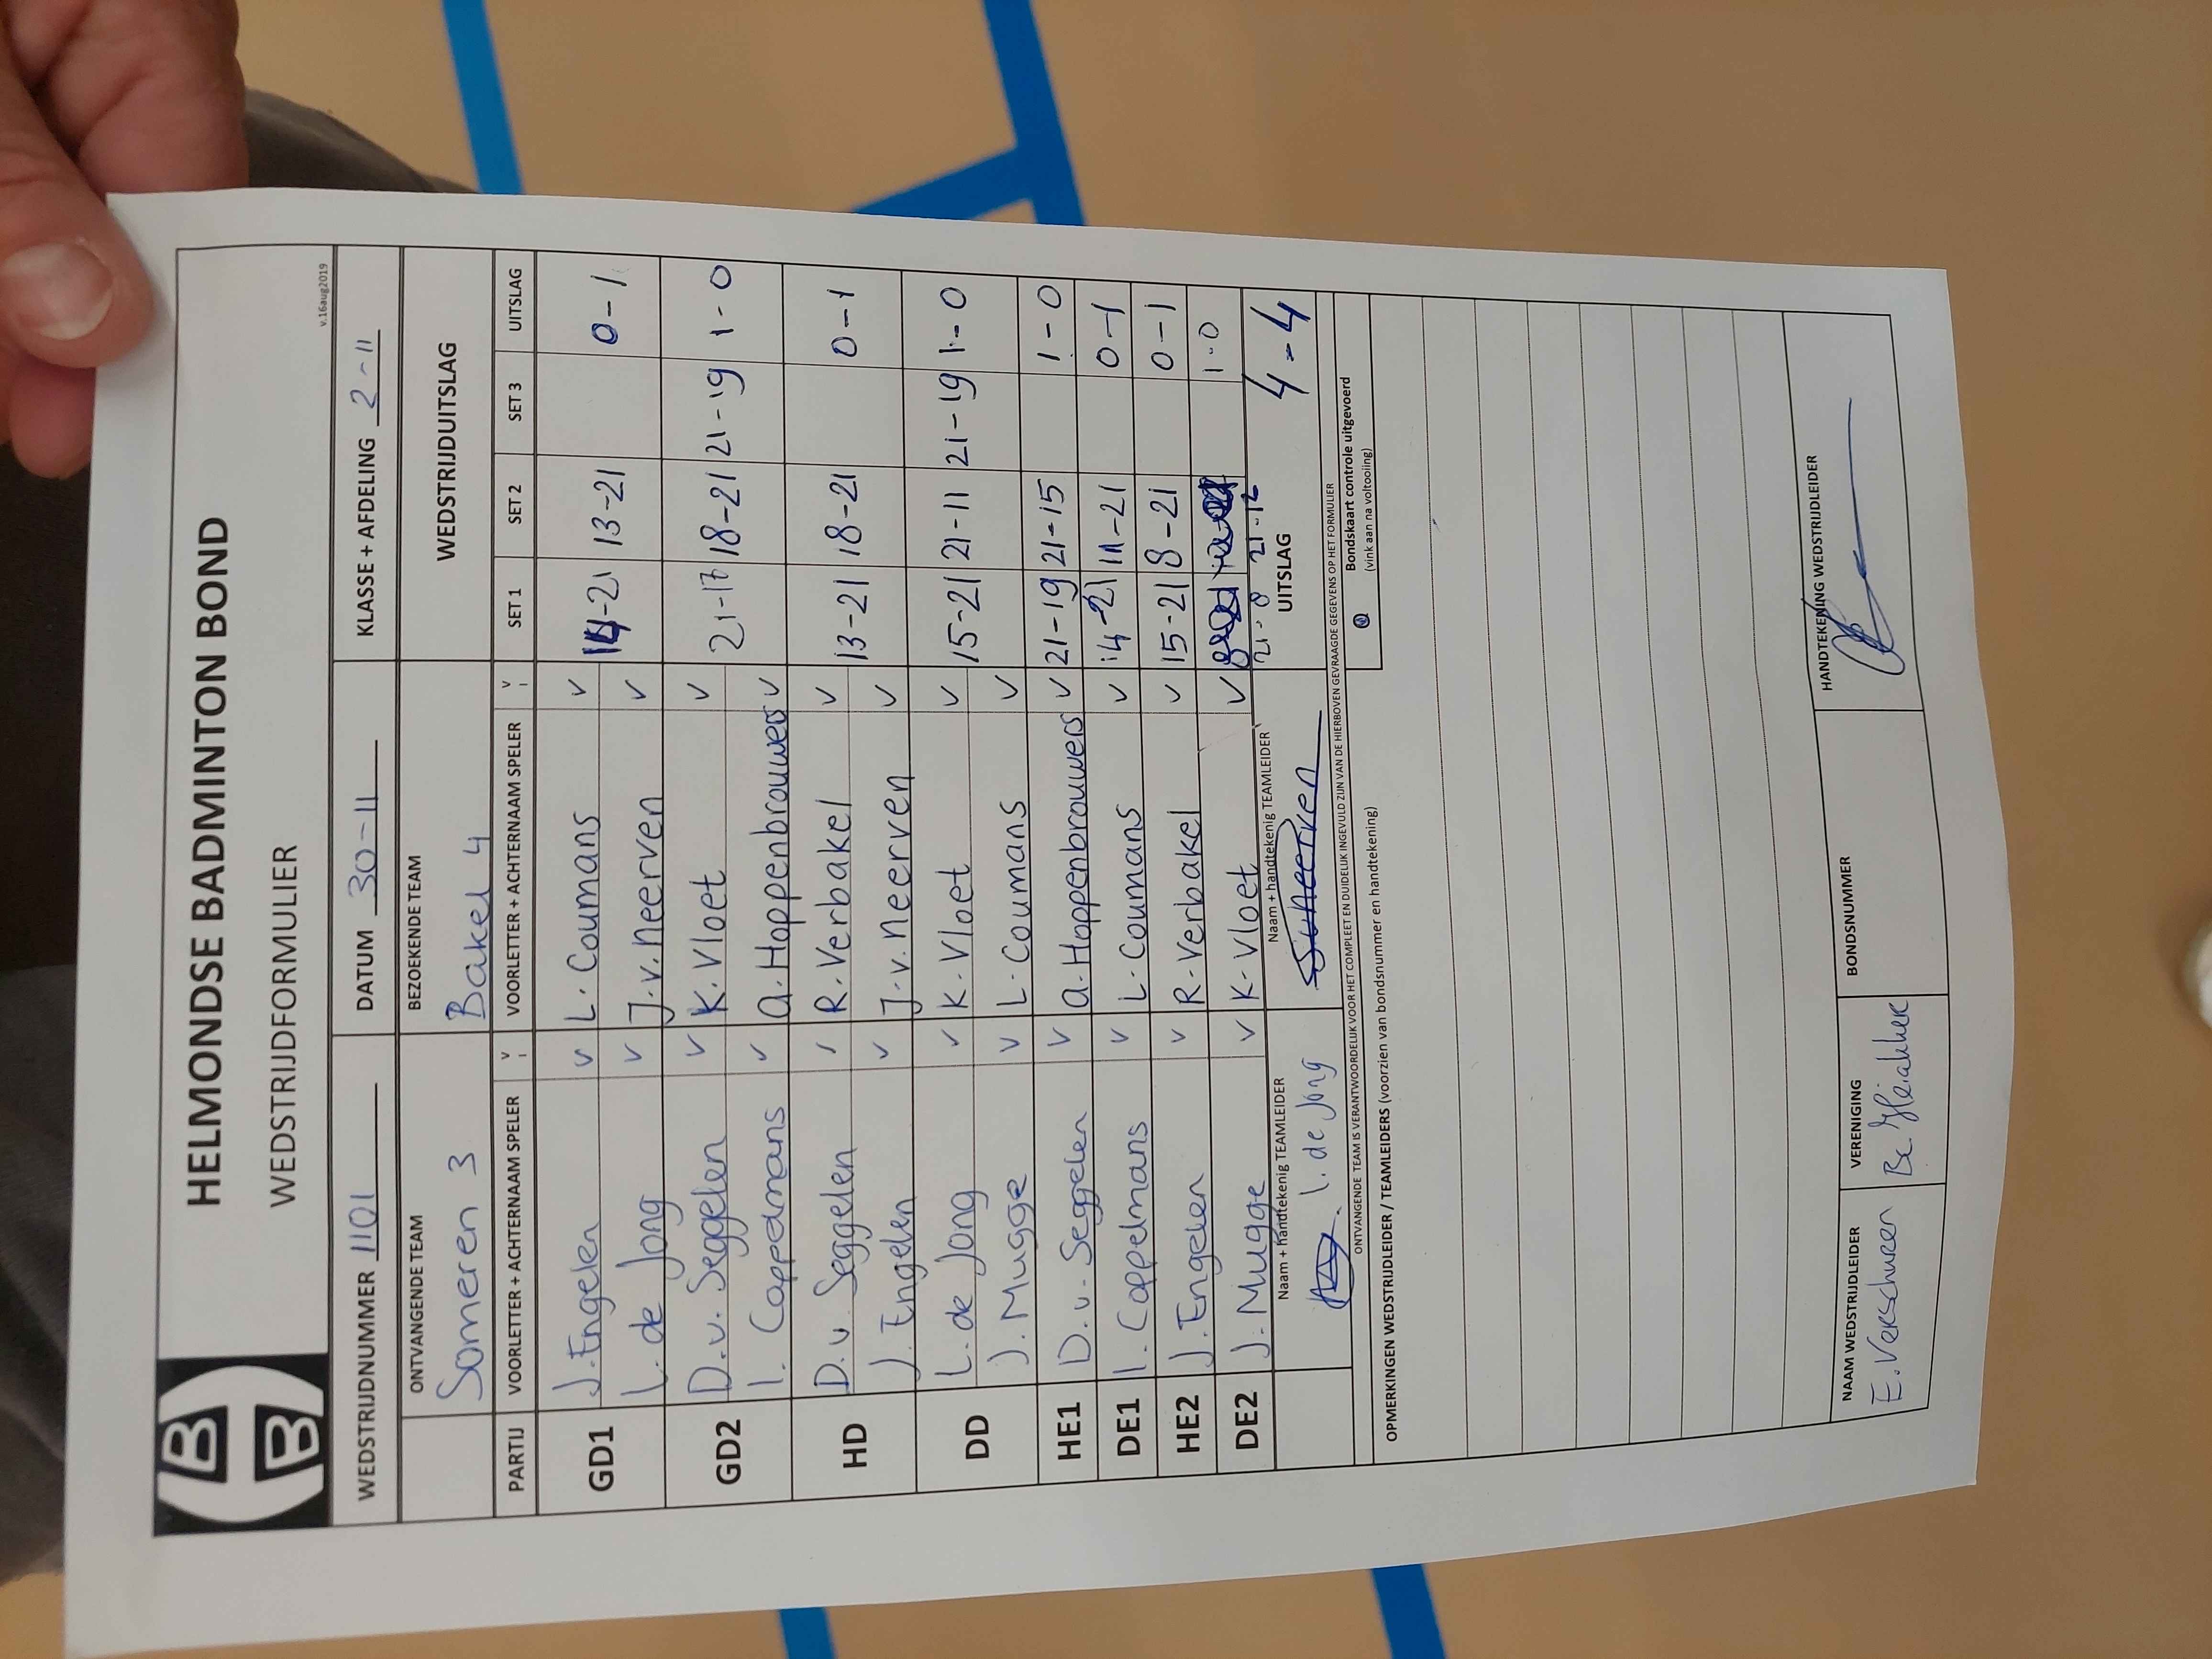 HELMONDSE BADMINTON BOND
WEDSTRIJDFORMULIER
v.16aug2019
WEDSTRIJDNUMMER 1101 DATUM 30-11 KLASSE + AFDELING 2-11
ONTVANGENDE TEAM BEZOEKENDE TEAM WEDSTRIJDUITSLAG
Someren 3 Bakel 4
PARTIJ VOORLETTER + ACHTERNAAM SPELER V VOORLETTER + ACHTERNAAM SPELER V SET 1 SET 2 SET 3 UITSLAG
GD1 J. Engelen v L. Coumans v 14-21 13-21 0-1
L. de Jong v J.v.Neerven v
GD2 D.v. Seggelen v K. Vloet v 21-17 18-21 21-19 1-0
I. Coppelmans v A. Hoppenbrouwers v
HD D.v Seggelen v R. Verbakel v 13-21 18-21 0-1
J. Engelen v J.v. Neerven v
DD L. de Jong v K. Vloet v 15-21 21-11 21-19 1-0
J. Mugge v L. Coumans v
HE1 D.v. Seggelen v A. Hoppenbrouwers v 21-19 21-15 1-0
DE1 I. Coppelmans v L. Coumans v 14-21 11-21 0-1
HE2 J. Engelen v R. Verbakel v 15-21 8-21 0-1
DE2 J. Mugge v K. Vloet v 1-0
21-8 21-12
Naam + handtekenig TEAMLEIDER Naam + handtekenig TEAMLEIDER UITSLAG 4-4
l. de Jong
ONTVANGENDE TEAM IS VERANTWOORDELIJK VOOR HET COMPLEET EN DUIDELIJK INGEVULD ZIJN VAN DE HIERBOVEN GEVRAAGDE GEGEVENS OP HET FORMULIER
Bondskaart controle uitgevoerd
(vink aan na voltooiing)
OPMERKINGEN WEDSTRIJDLEIDER / TEAMLEIDERS (voorzien van bondsnummer en handtekening)
NAAM WEDSTRIJDLEIDER VERENIGING BONDSNUMMER HANDTEKENING WEDSTRIJDLEIDER
E. Verschuren BC